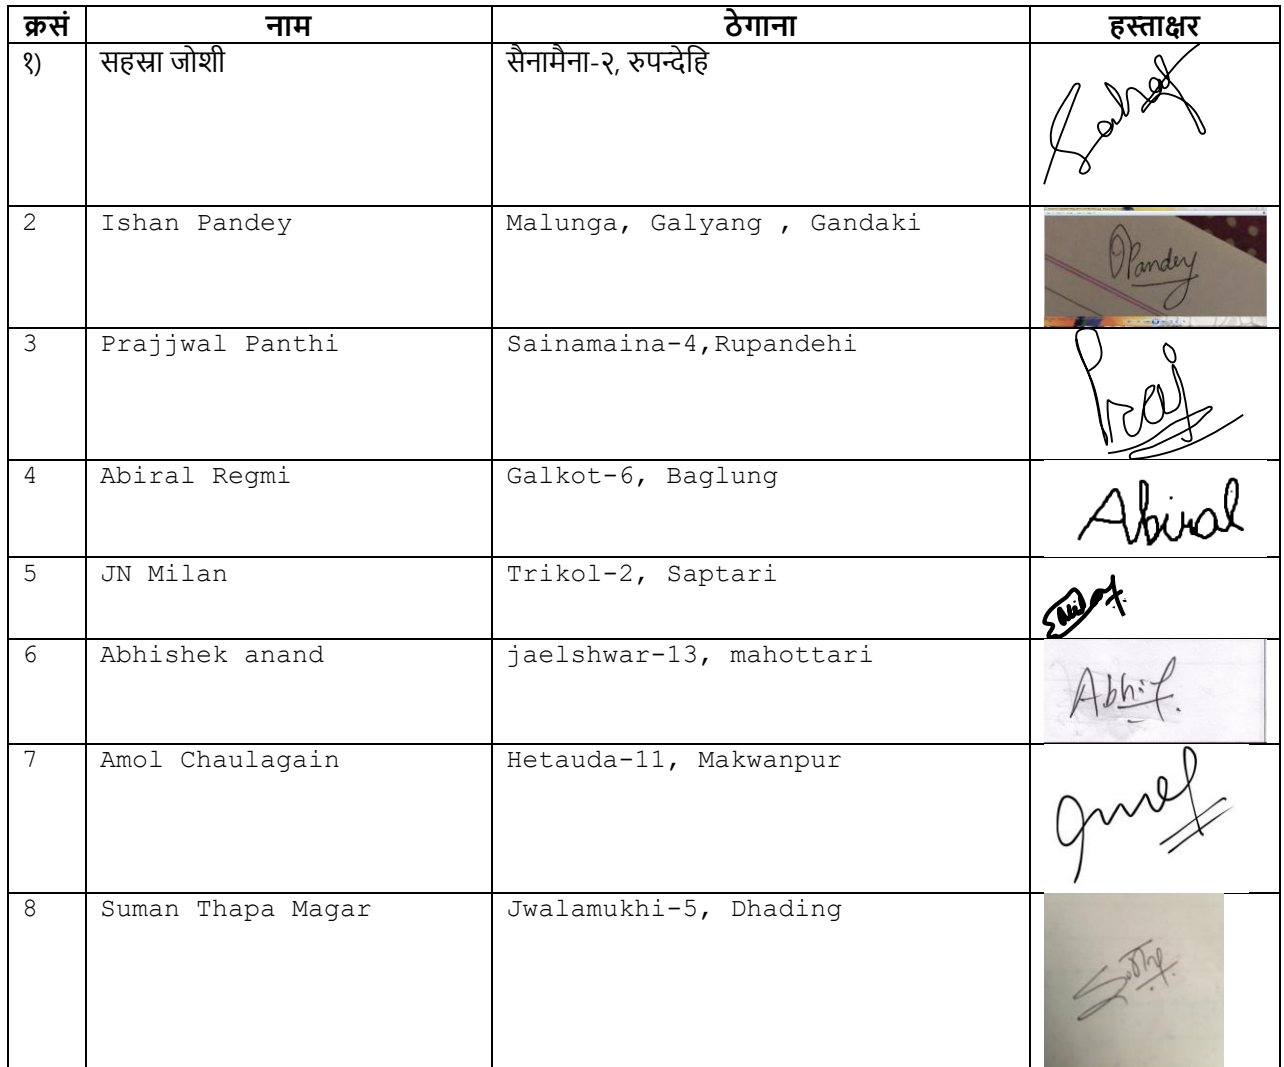 क्रसं नाम ठेगाना हस्ताक्षर
१) सहस्रा जोशी सैनामैना-२, रुपन्देहि
2 Ishan Pandey Malunga, Galyang , Gandaki Pandey
3 Prajjwal Panthi Sainamaina-4,Rupandehi Praj
4 Abiral Regmi Galkot-6, Baglung Abiral
5 JN Milan Trikol-2, Saptari
6 Abhishek anand jaelshwar-13, mahottari
7 Amol Chaulagain Hetauda-11, Makwanpur
8 Suman Thapa Magar Jwalamukhi-5, Dhading